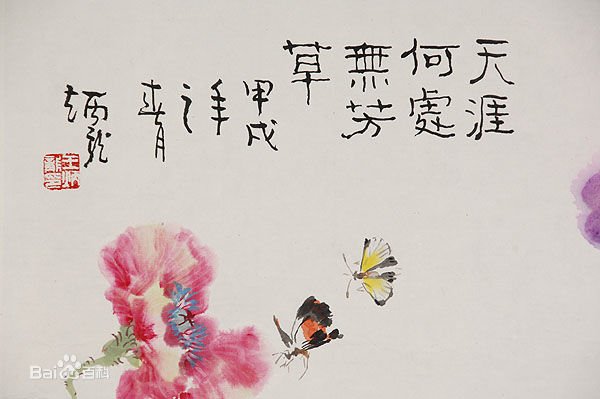 天涯
何處
無芳
草
甲戌
年
之
春月
炳龍
Bai百科